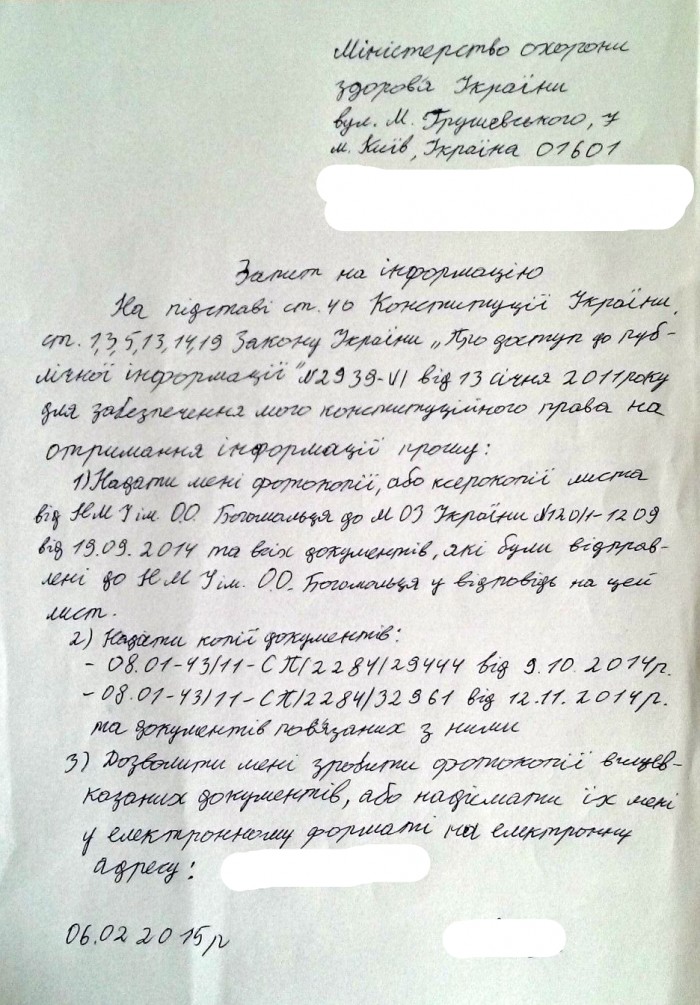 Міністерство охорони
здоров'я України
вул. М. Грушевського, 7
м. Київ, Україна 01601
Запит на інформацію
На підставі ст. 40 Конституції України,
ст. 1,3,5,13,14,19 Закону України „Про доступ до пуб-
лічної інформації" №2939-VI від 13 січня 2011 року
для забезпечення мого конституційного права на
отримання інформації прошу:
1) Надати мені фотокопії, або ксерокопії листа
від НМУ ім. О.О. Богомольця до МОЗ України №120/1-1209
від 19.09.2014 та всіх документів, які були відправ-
лені до НМУ ім. О.О. Богомольця у відповідь на цей
лист.
2) Надати копії документів:
- 08.01-43/11-СП/2284/29444 від 9.10.2014р.
- 08.01-43/11-СП/2284/32961 від 12.11.2014р.
та документів пов'язаних з ними
3) Дозволити мені зробити фотокопії вищев-
казаних документів, або надіслати їх мені
у електронному форматі на електронну
адресу:
06.02 2015р